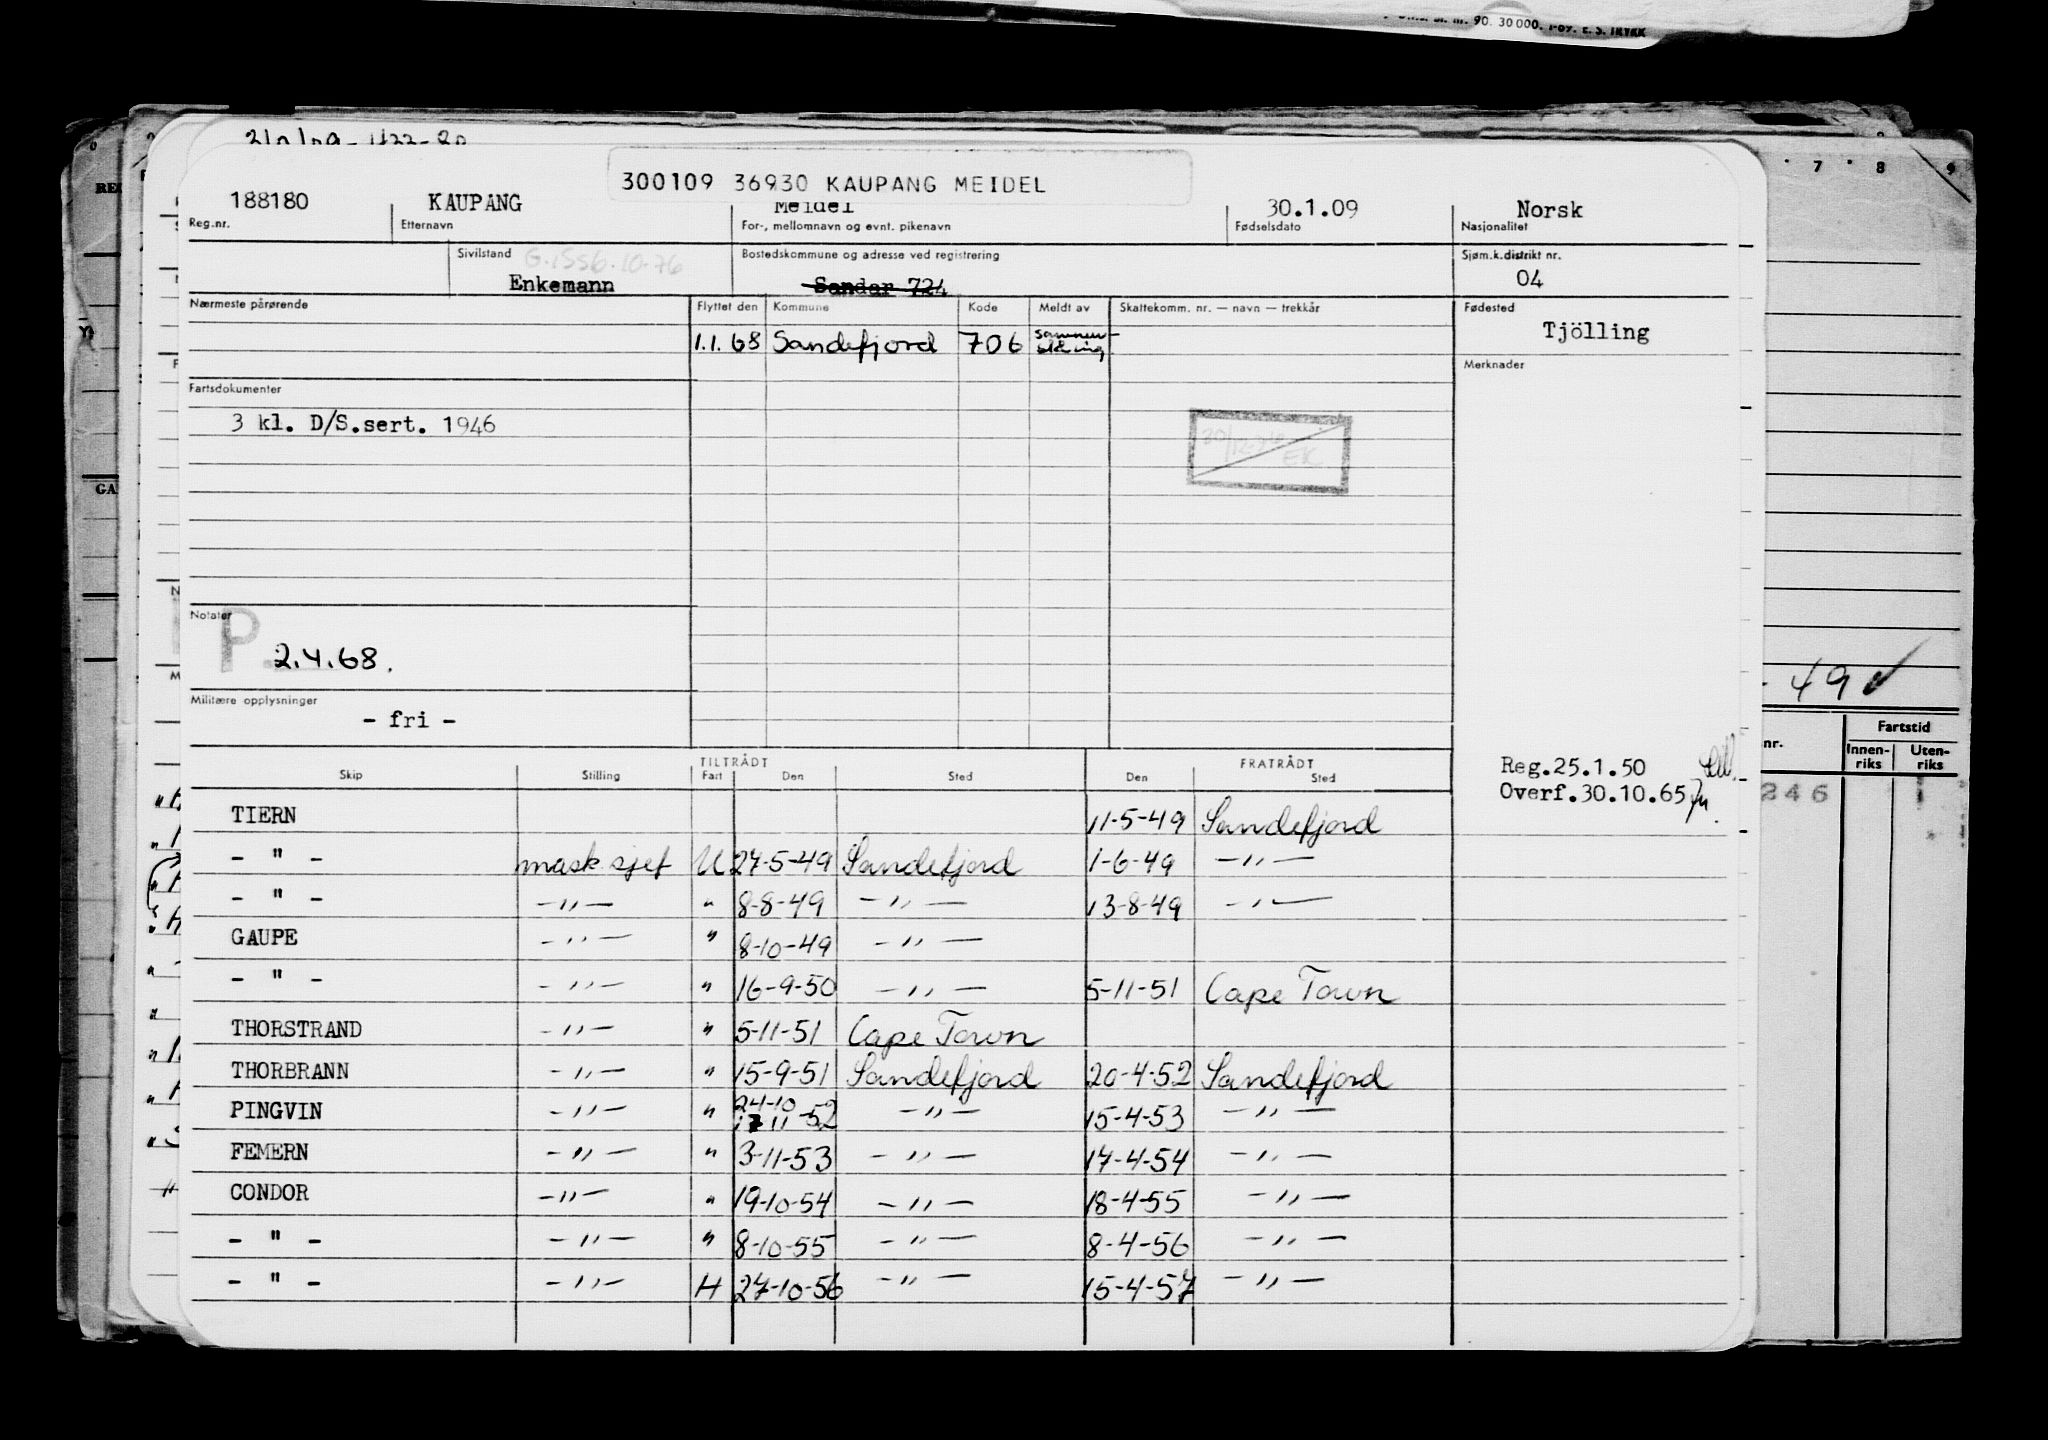 90. 30 000.
7 8 9
300109 36930 KAUPANG MEIDEL
188180 KAUPANG Meidel 30.1.09 Norsk
Reg.nr. Etternavn For-, mellomnavn og evnt. pikenavn Fødselsdato Nasjonalitet
Sivilstand G.1556.10.76 Bostedskommune og adresse ved registrering Sjøm.k.distrikt nr.
Enkemann Sandar 724 04
Nærmeste pårørende Flyttet den Kommune Kode Meldt av Skattekomm. nr. — navn — trekkår Fødested
1.1.68 Sandefjord 706 Tjölling
Merknader
Fartsdokumenter
3 kl. D/S.sert. 1946
EK
Notater
P.
2.4.68.
- 49
Militære opplysninger
- fri -
nr. Fartstid
Innen-riks Uten-riks
246
TILTRÅDT FRATRÅDT
Skip Stilling Fart Den Sted Den Sted
Reg.25.1.50
Overf.30.10.65
TIERN 11-5-49 Sandefjord
- " - mask sjef U 27-5-49 Sandefjord 1-6-49 -"-
- " - -"- " 8-8-49 -"- 13-8-49 -"-
GAUPE -"- " 8-10-49 -"-
- " - -"- " 16-9-50 -"- 5-11-51 Cape Town
THORSTRAND -"- " 5-11-51 Cape Town
THORBRANN -"- " 15-9-51 Sandefjord 20-4-52 Sandefjord
PINGVIN -"- " 24-10 17 11 -52 -"- 15-4-53 -"-
FEMERN -"- " 3-11-53 -"- 17-4-54 -"-
CONDOR -"- " 19-10-54 -"- 18-4-55 -"-
- " - -"- " 8-10-55 -"- 8-4-56 -"-
- " - -"- H 27-10-56 -"- 15-4-57 -"-